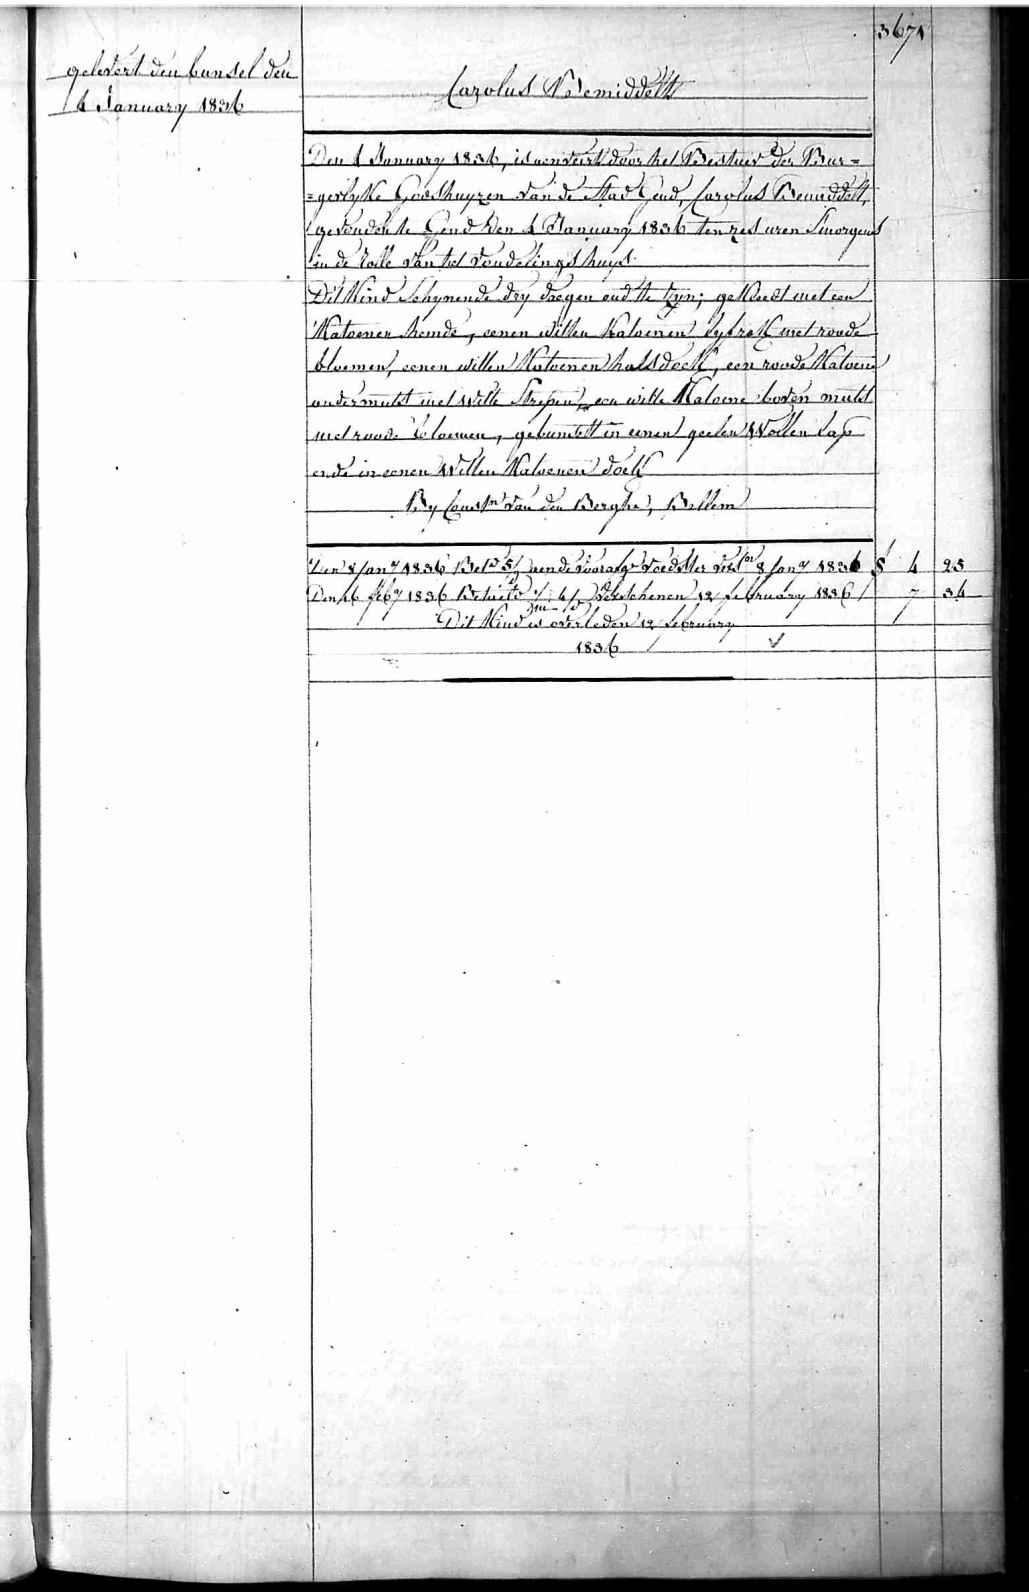 3671
gelevert den bunsel den
4 January 1836
Carolus Bemiddelt
Den 4 January 1836, is aenveirt door het Bestuer der Bur=
=gerlyke Godshuyzen van de Stad Gend, Carolus Bemiddelt,
gevonden te Gend den 4 January 1836 ten zes uren Smorgens
in de rolle van het vondelingshuys.
Dit Kind Schynende dry daegen oud te zyn; gekleed met een
Katoenen hemde, eenen witten Katoenen lyfrok met roode
bloemen, eenen witten Katoenen halsdoek, een roode Katoene
ondermutst met Witte Strepen, een witte Katoene boven mutst
met roode bloemen, gebunselt in eenen geelen Wollen Lap
ende in eenen Witten Katoenen doek
By Const.n van den Berghe, Bellem
Den 8 Jan.y 1836 Bet.d aende voorafg.e Voedster 8 Jan.y 1836 4 25
Den 26 feb.y 1836 Betaelt verschenen 12 february 1836 7 34
Dit Kind is overleden 12 february
1836